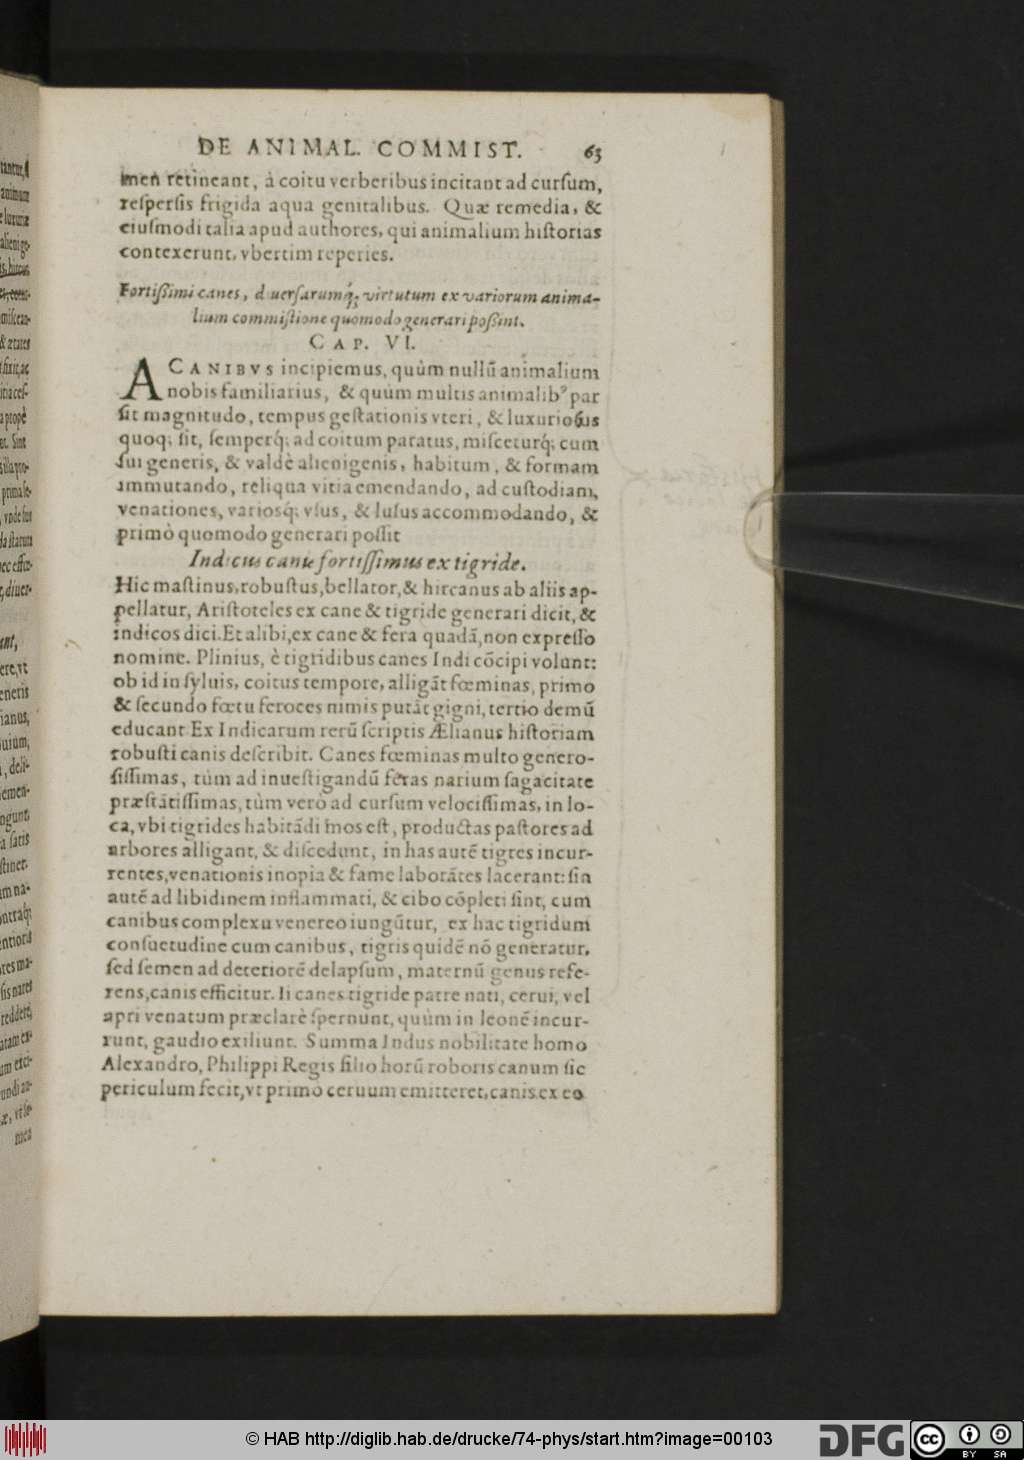 DE ANIMAL. COMMIST. 63
men retineant, à coitu verberibus incitant ad cursum,
respersis frigida aqua genitalibus. Quæ remedia, &
eiusmodi talia apud authores, qui animalium historias
contexerunt, vbertim reperies.
Fortißimi canes, diuersarumq́; virtutum ex variorum anima-
lium commistione quomodo generari poßint.
CAP. VI.
A CANIBVS incipiemus, quùm nullũ animalium
nobis familiarius, & quùm multis animalibꝰ par
sit magnitudo, tempus gestationis vteri, & luxuriosus
quoq; sit, semperq́; ad coitum paratus, misceturq́; cum
sui generis, & valdè alienigenis, habitum, & formam
immutando, reliqua vitia emendando, ad custodiam,
venationes, variosq́; vsus, & lusus accommodando, &
primò quomodo generari possit
Indicus canis fortissimus ex tigride.
Hic mastinus, robustus, bellator, & hircanus ab aliis ap-
pellatur, Aristoteles ex cane & tigride generari dicit, &
indicos dici. Et alibi, ex cane & fera quadã, non expresso
nomine. Plinius, è tigridibus canes Indi cõcipi volunt:
ob id in syluis, coitus tempore, alligãt fœminas, primo
& secundo fœtu feroces nimis putãt gigni, tertio demũ
educant Ex Indicarum rerũ scriptis Ælianus historiam
robusti canis describit. Canes fœminas multo genero-
sissimas, tùm ad inuestigandũ feras narium sagacitate
præstãtissimas, tùm verò ad cursum velocissimas, in lo-
ca, vbi tigrides habitãdi mos est, productas pastores ad
arbores alligant, & discedunt, in has autẽ tigres incur-
rentes, venationis inopia & fame laborãtes lacerant: sin
autẽ ad libidinem inflammati, & cibo cõpleti sint, cum
canibus complexu venereo iungũtur, ex hac tigridum
consuetudine cum canibus, tigris quidẽ nõ generatur,
sed semen ad deteriorẽ delapsum, maternũ genus refe-
rens, canis efficitur. Ii canes tigride patre nati, cerui, vel
apri venatum præclarè spernunt, quùm in leonẽ incur-
runt, gaudio exiliunt. Summa Indus nobilitate homo
Alexandro, Philippi Regis filio horũ roboris canum sic
periculum fecit, vt primo ceruum emitteret, canis ex eo
© HAB http://diglib.hab.de/drucke/74-phys/start.htm?image=00103
DFG
cc BY SA